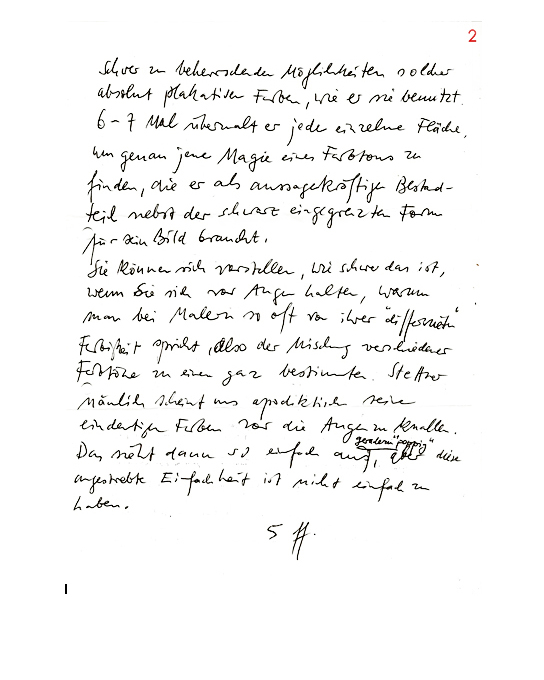 2
schwer zu beherrschenden Möglichkeiten solcher
absolut plakativen Farben, wie er sie benutzt.
6 - 7 Mal übermalt er jede einzelne Fläche,
um genau jene Magie eines Farbtons zu
finden, die er als aussagekräftigen Bestand-
teil nebst der schwarz eingegrenzten Form
für sein Bild braucht.
Sie können sich vorstellen, wie schwer das ist,
wenn Sie sich vor Augen halten, warum
man bei Malern so oft von ihrer "differenzierten"
Farbigkeit spricht, also der Mischung verschiedener
Farbtöne zu einem ganz bestimmten. Stettner
nämlich scheint uns apodiktisch seine
eindeutigen Farben vor die Augen zu knallen.
geradezu "poppig"
Das sieht dann so einfach aus, aber diese
angestrebte Einfachheit ist nicht einfach zu
haben.
5 ff.